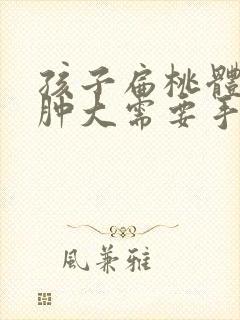 孩子扁桃體
肿大需要手
風兼雅